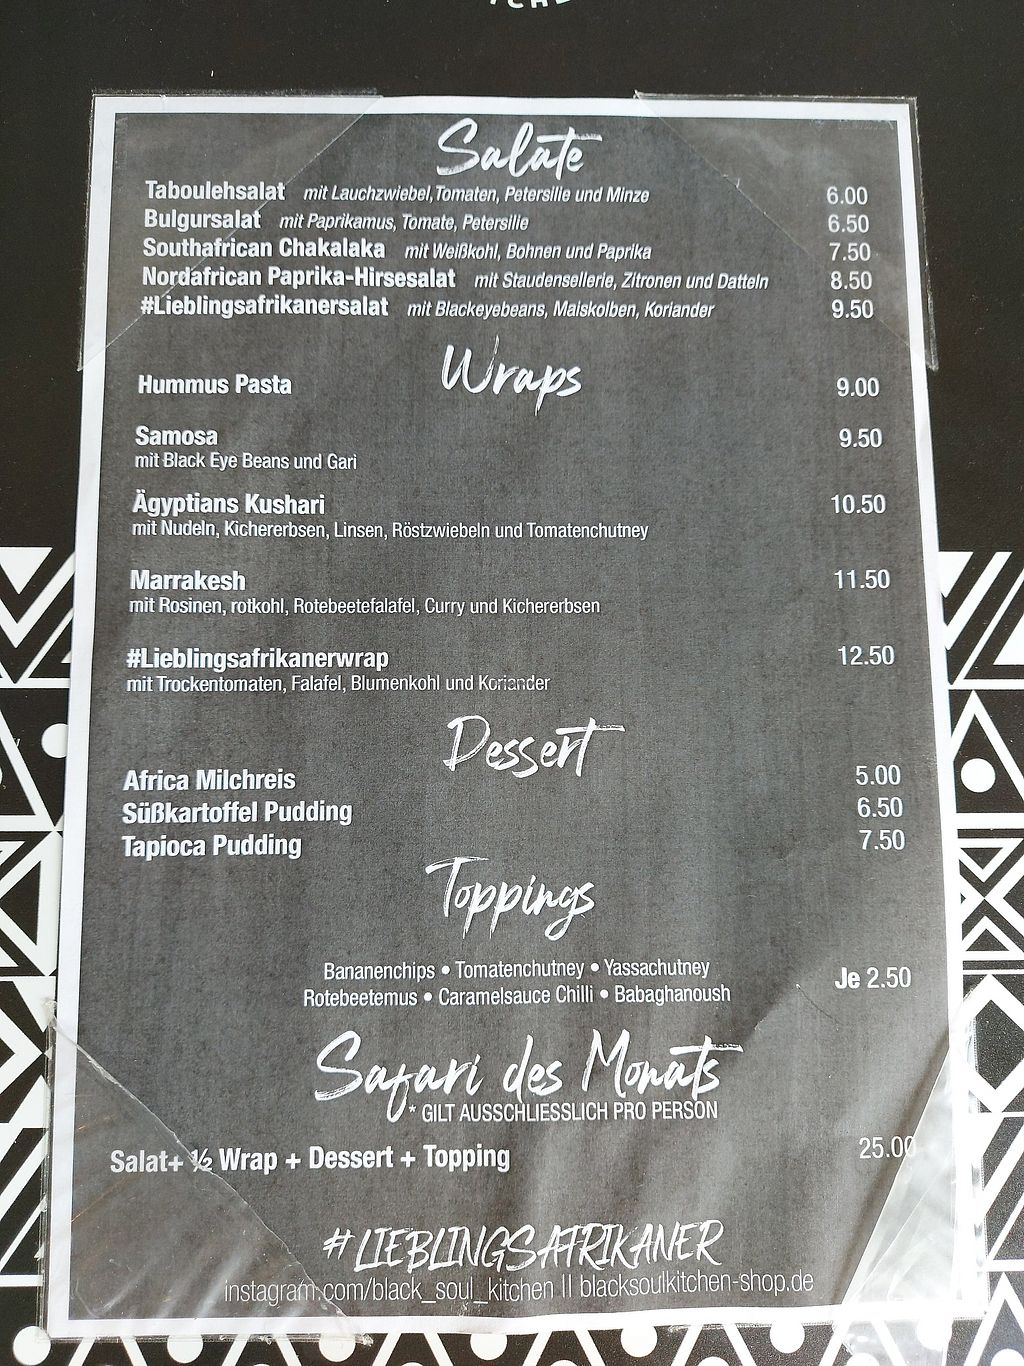 Salate
Taboulehsalat mit Lauchzwiebel,Tomaten, Petersilie und Minze 6.00
Bulgursalat mit Paprikamus, Tomate, Petersilie 6.50
Southafrican Chakalaka mit Weißkohl, Bohnen und Paprika 7.50
Nordafrican Paprika-Hirsesalat mit Staudensellerie, Zitronen und Datteln 8.50
#Lieblingsafrikanersalat mit Blackeyebeans, Maiskolben, Koriander 9.50
Wraps
Hummus Pasta 9.00
Samosa 9.50
mit Black Eye Beans und Gari
Ägyptians Kushari 10.50
mit Nudeln, Kichererbsen, Linsen, Röstzwiebeln und Tomatenchutney
Marrakesh 11.50
mit Rosinen, rotkohl, Rotebeetefalafel, Curry und Kichererbsen
#Lieblingsafrikanerwrap 12.50
mit Trockentomaten, Falafel, Blumenkohl und Koriander
Dessert
Africa Milchreis 5.00
Süßkartoffel Pudding 6.50
Tapioca Pudding 7.50
Toppings
Bananenchips • Tomatenchutney • Yassachutney
Rotebeetemus • Caramelsauce Chilli • Babaghanoush
Je 2.50
Safari des Monats
* GILT AUSSCHLIESSLICH PRO PERSON
Salat+ ½ Wrap + Dessert + Topping 25.00
#LIEBLINGSAFRIKANER
instagram.com/black_soul_kitchen II blacksoulkitchen-shop.de